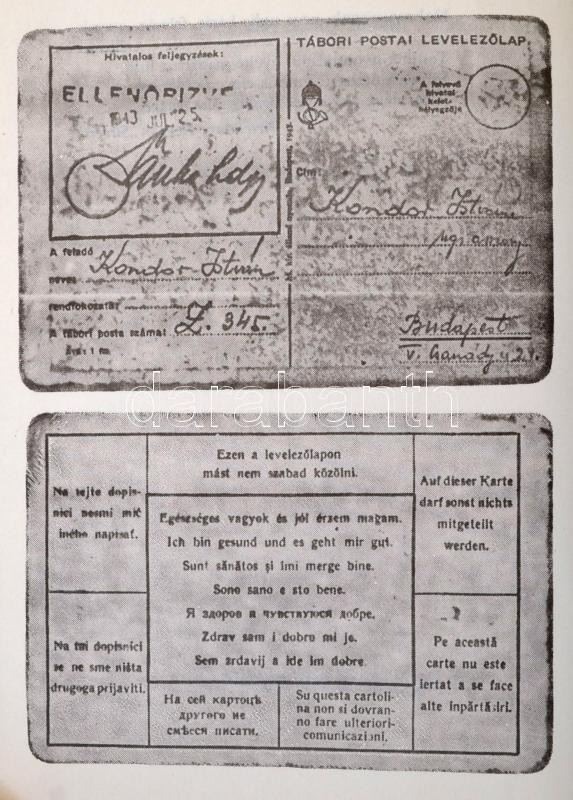 TÁBORI POSTAI LEVELEZŐLAP.
Hivatalos feljegyzések:
ELLENŐRIZVE
1943 JUL 25
A felvevő
hivatal
kelet-
bélyegzője
Cím:
Kondor István
A feladó
neve: Kondor István
rendfokozata:
A tábori posta száma: Z. 345.
Ára: 1 fill.
Budapest
V.
darabanth
Ezen a levelezőlapon
mást nem szabad közölni.
Na tejto dopis-
nici nesmi mič
iného napísať.
Auf dieser Karte
darf sonst nichts
mitgeteilt
werden.
Egészséges vagyok és jól érzem magam.
Ich bin gesund und es geht mir gut.
Sunt sănătos și îmi merge bine.
Sono sano e sto bene.
Я здоров и чувствуюся добре.
Zdrav sam i dobro mi je.
Sem zrdavij a ide im dobre.
Na toj dopisnici
se ne sme ništa
drugoga prijaviti.
Pe această
carte nu este
iertat a se face
alte înpărtășiri.
На сей картоцѣ
другого не
смѣеся писати.
Su questa cartoli-
na non si dovran-
no fare ulteriori-
comunicazioni.